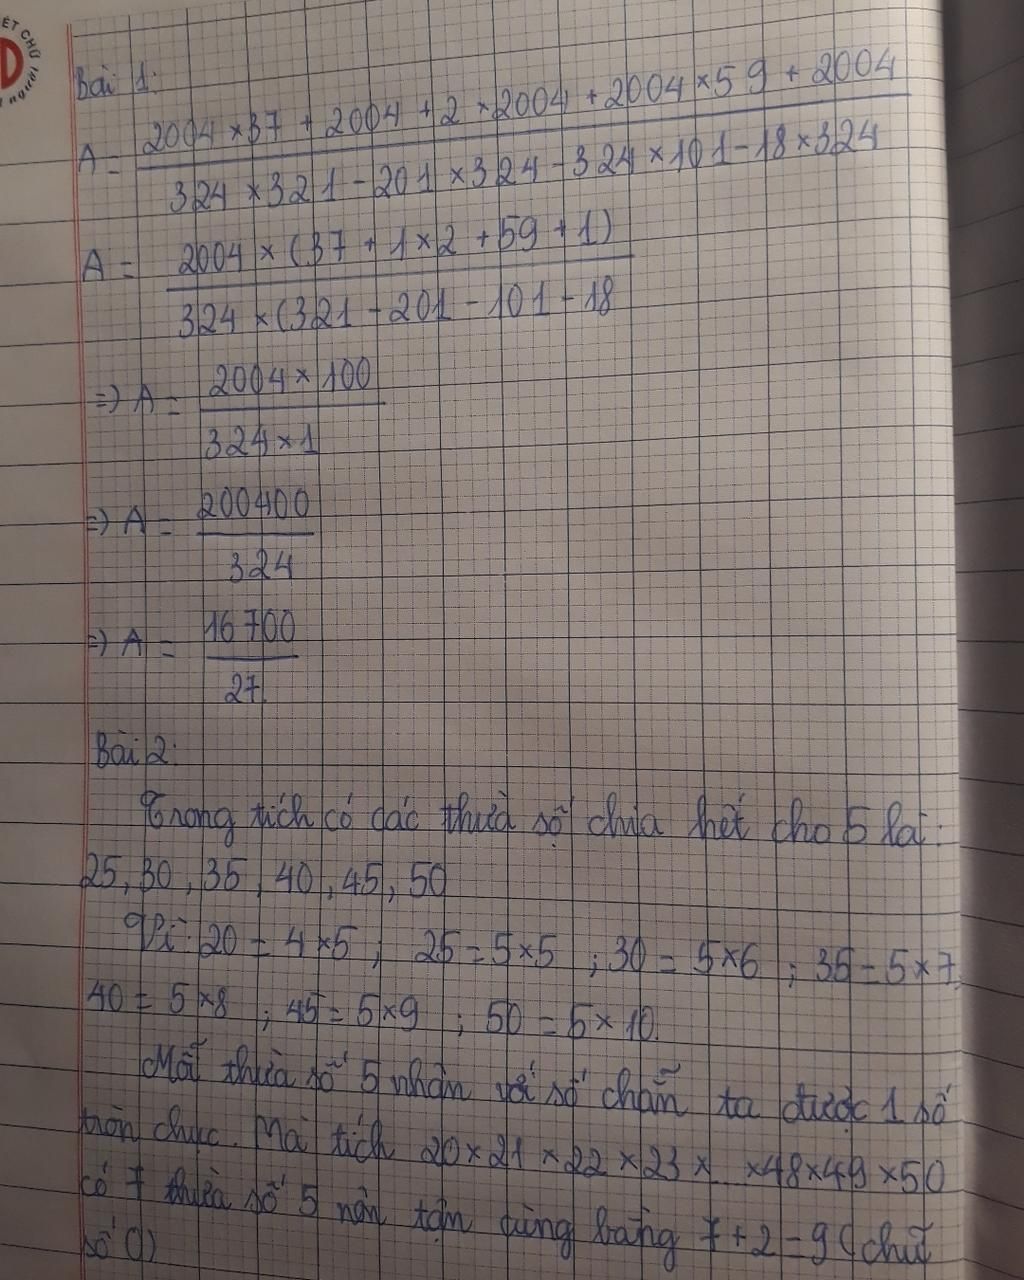 ẾT CHỮ
D
Bài 1:
A = 2004 × 37 + 2004 + 2 × 2004 + 2004 × 59 + 2004
324 × 321 - 201 × 324 - 324 × 101 - 18 × 324
A = 2004 × (37 + 1 × 2 + 59 + 1)
324 × (321 - 201 - 101 - 18
=> A = 2004 × 100
324 × 1
=> A = 200400
324
=> A = 16700
27
Bài 2:
Trong tích có các thừa số chia hết cho 5 là:
25, 30, 35, 40, 45, 50
Vì: 20 = 4 × 5 ; 25 = 5 × 5 ; 30 = 5 × 6 ; 35 = 5 × 7
40 = 5 × 8 ; 45 = 5 × 9 ; 50 = 5 × 10.
Mỗi thừa số 5 nhân với số chẵn ta được 1 số
tròn chục. Mà tích 20 × 21 × 22 × 23 × × 48 × 49 × 50
có 7 thừa số 5 nên tận cùng bằng 7 + 2 = 9 (chữ
số 0)